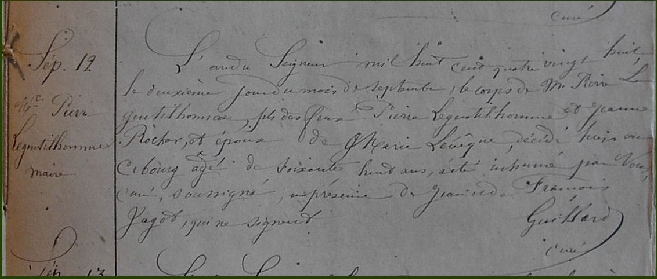 curé
Sep. 12
Mr Pierre
Leguilhommet
maire
L'an du Seigneur mil huit cent quatre vingt huit
le deuxième jour du mois de septembre, le corps de Mr Pierre Le
guilhomme, fils des feux Pierre Leguilhomme et Jeanne
Rochor, et époux de Marie Levêque, décédé hier au
bourg âgé de soixante huit ans, a été inhumé par Nous
curé, soussigné, en présence de Jean François
Pagot, qui ne signent
Guillard
curé
Sep. 13